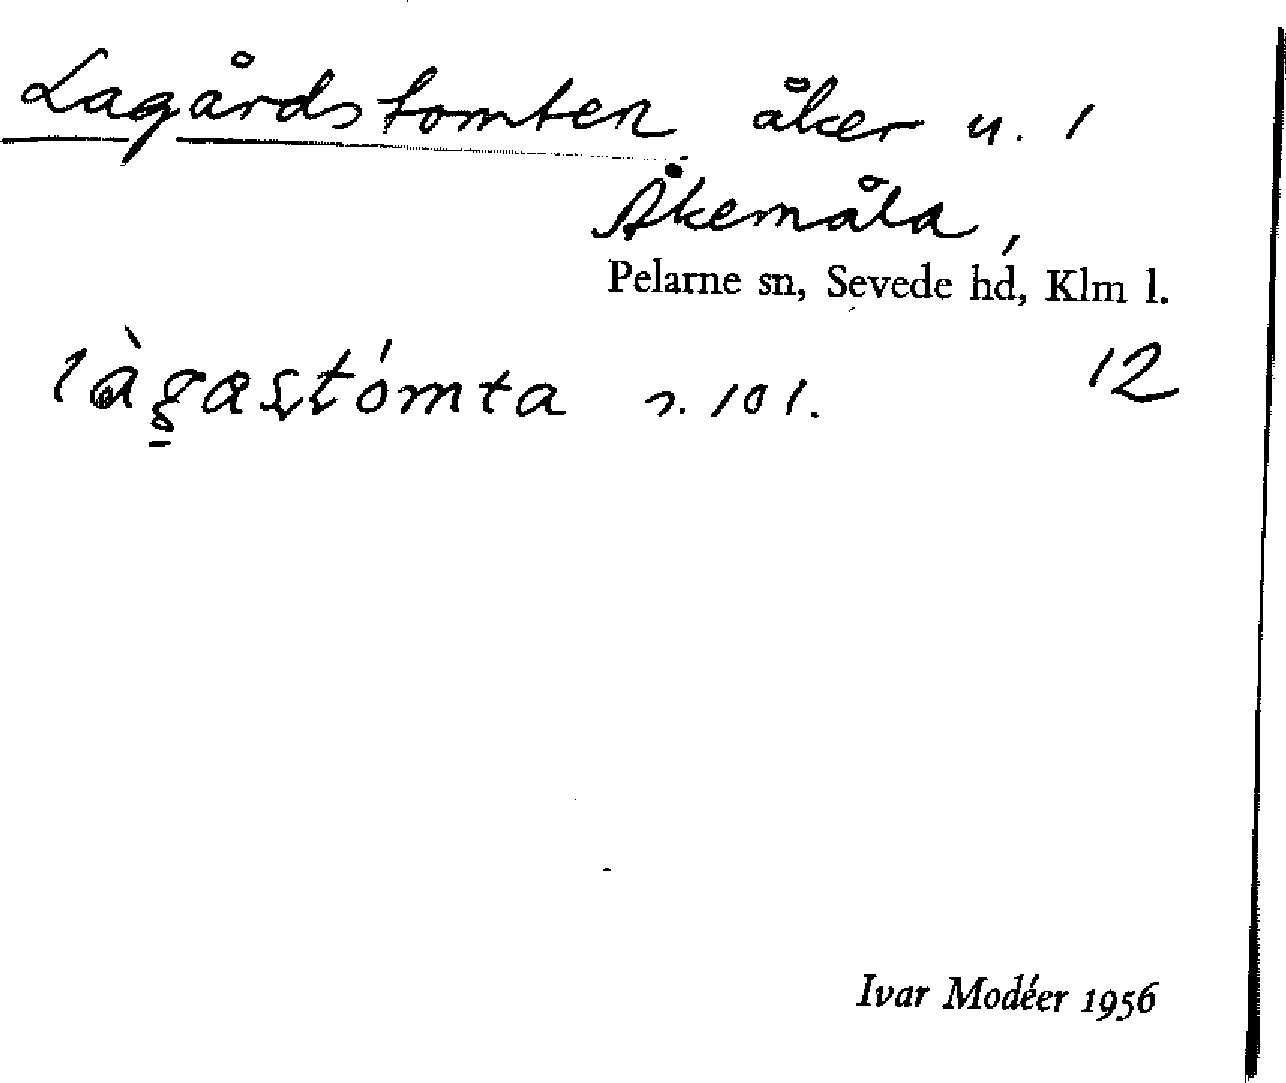 Lagårdstomten åker u. 1
Åkemåla,
Pelarne sn, Sevede hd, Klm l.
làgastómta r. 10 1. 12
Ivar Modéer 1956